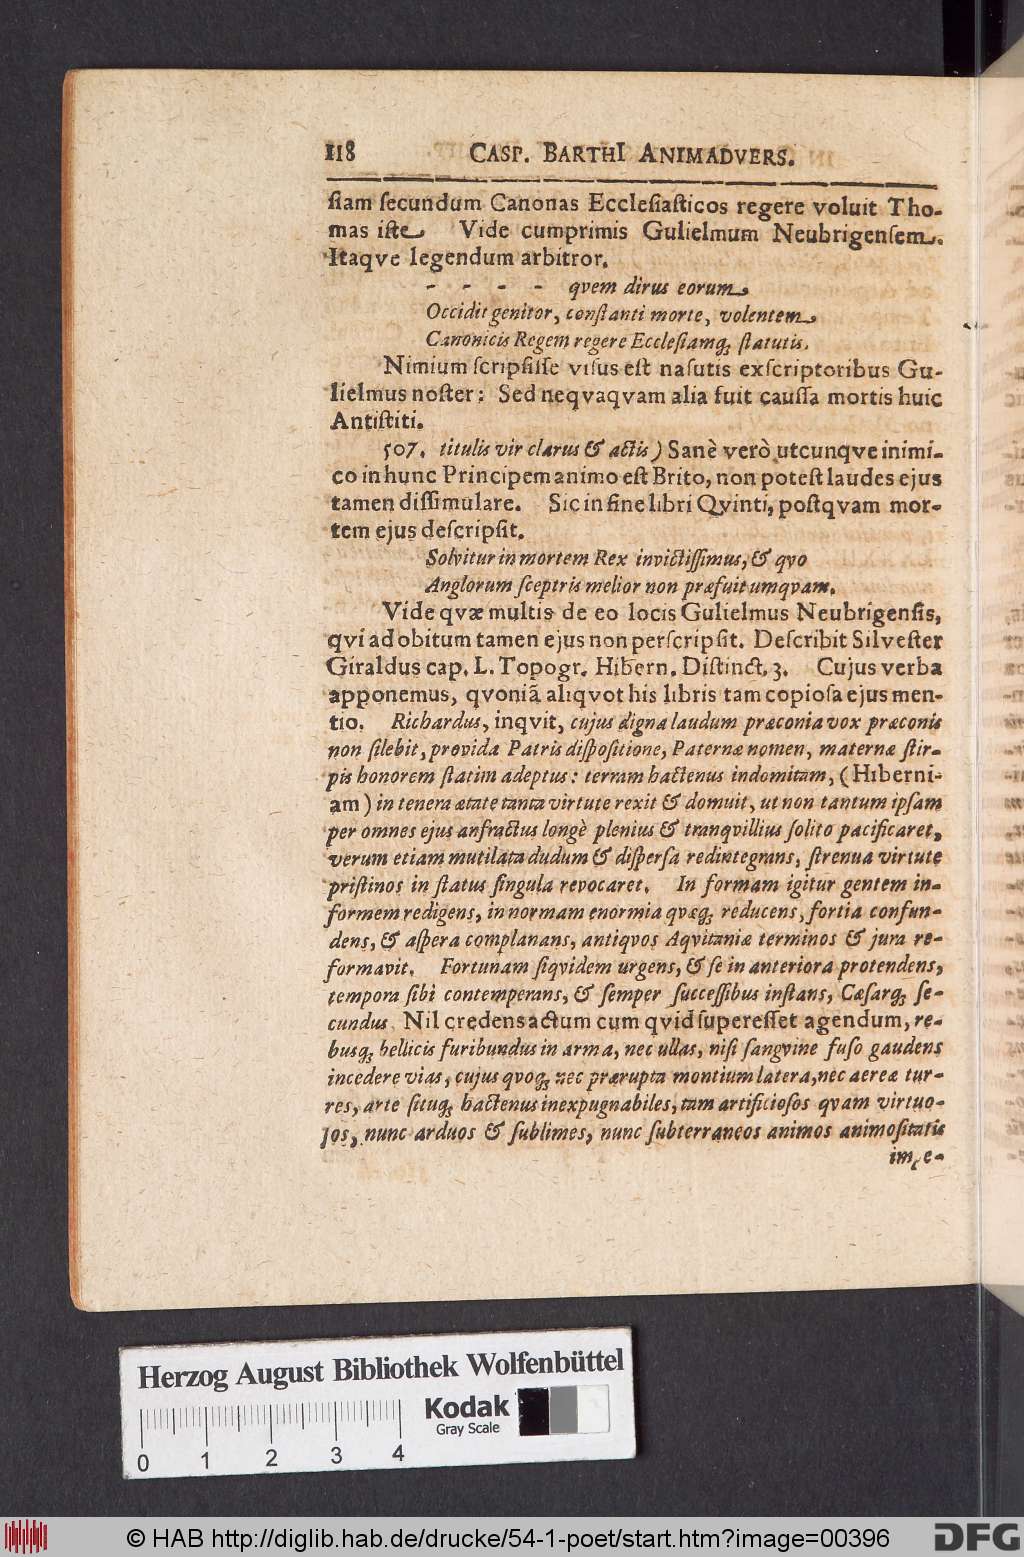 118 CASP. BARTHI ANIMADVERS.
ſiam ſecundum Canonas Eccleſiaſticos regere voluit Tho-
mas iſte. Vide cumprimis Gulielmum Neubrigenſem.
Itaqve legendum arbitror.
- - - - qvem dirus eorum
Occidit genitor, conſtanti morte, volentem
Canonicis Regem regere Eccleſiamq; ſtatutis.
Nimium ſcripſiſſe viſus eſt naſutis exſcriptoribus Gu-
lielmus noſter: Sed neqvaqvam alia fuit cauſſa mortis huic
Antiſtiti.
507. titulis vir clarus & actis) Sanè verò utcunqve inimi-
co in hunc Principem animo eſt Brito, non poteſt laudes ejus
tamen diſſimulare. Sic in fine libri Qvinti, poſtqvam mor-
tem ejus deſcripſit.
Solvitur in mortem Rex invictiſſimus, & qvo
Anglorum ſceptris melior non præfuit umqvam.
Vide qvæ multis de eo locis Gulielmus Neubrigenſis,
qvi ad obitum tamen ejus non perſcripſit. Deſcribit Silveſter
Giraldus cap. L. Topogr. Hibern. Diſtinct. 3. Cujus verba
apponemus, qvoniã aliqvot his libris tam copioſa ejus men-
tio. Richardus, inqvit, cujus digna laudum præconia vox præconis
non ſilebit, provida Patris diſpoſitione, Paternæ nomen, maternæ ſtir-
pis honorem ſtatim adeptus: terram hactenus indomitam, (Hiberni-
am) in tenera ætate tanta virtute rexit & domuit, ut non tantum ipſam
per omnes ejus anfractus longè plenius & tranqvillius ſolito pacificaret,
verum etiam mutilata dudum & diſperſa redintegrans, ſtrenua virtute
priſtinos in ſtatus ſingula revocaret. In formam igitur gentem in-
formem redigens, in normam enormia qvæq; reducens, fortia confun-
dens, & aſpera complanans, antiqvos Aqvitaniæ terminos & jura re-
formavit. Fortunam ſiqvidem urgens, & ſe in anteriora protendens,
tempora ſibi contemperans, & ſemper ſucceſſibus inſtans, Cæſarq; ſe-
cundus Nil credens actum cum qvid ſupereſſet agendum, re-
busq; bellicis furibundus in arma, nec ullas, niſi ſangvine fuſo gaudens
incedere vias, cujus qvoq; nec prærupta montium latera, nec aereæ tur-
res, arte ſituq; hactenus inexpugnabiles, tam artificioſos qvam virtuo-
ſos, nunc arduos & ſublimes, nunc ſubterraneos animos animoſitatis
impe-
Herzog August Bibliothek Wolfenbüttel
Kodak
Gray Scale
0 1 2 3 4
© HAB http://diglib.hab.de/drucke/54-1-poet/start.htm?image=00396
DFG